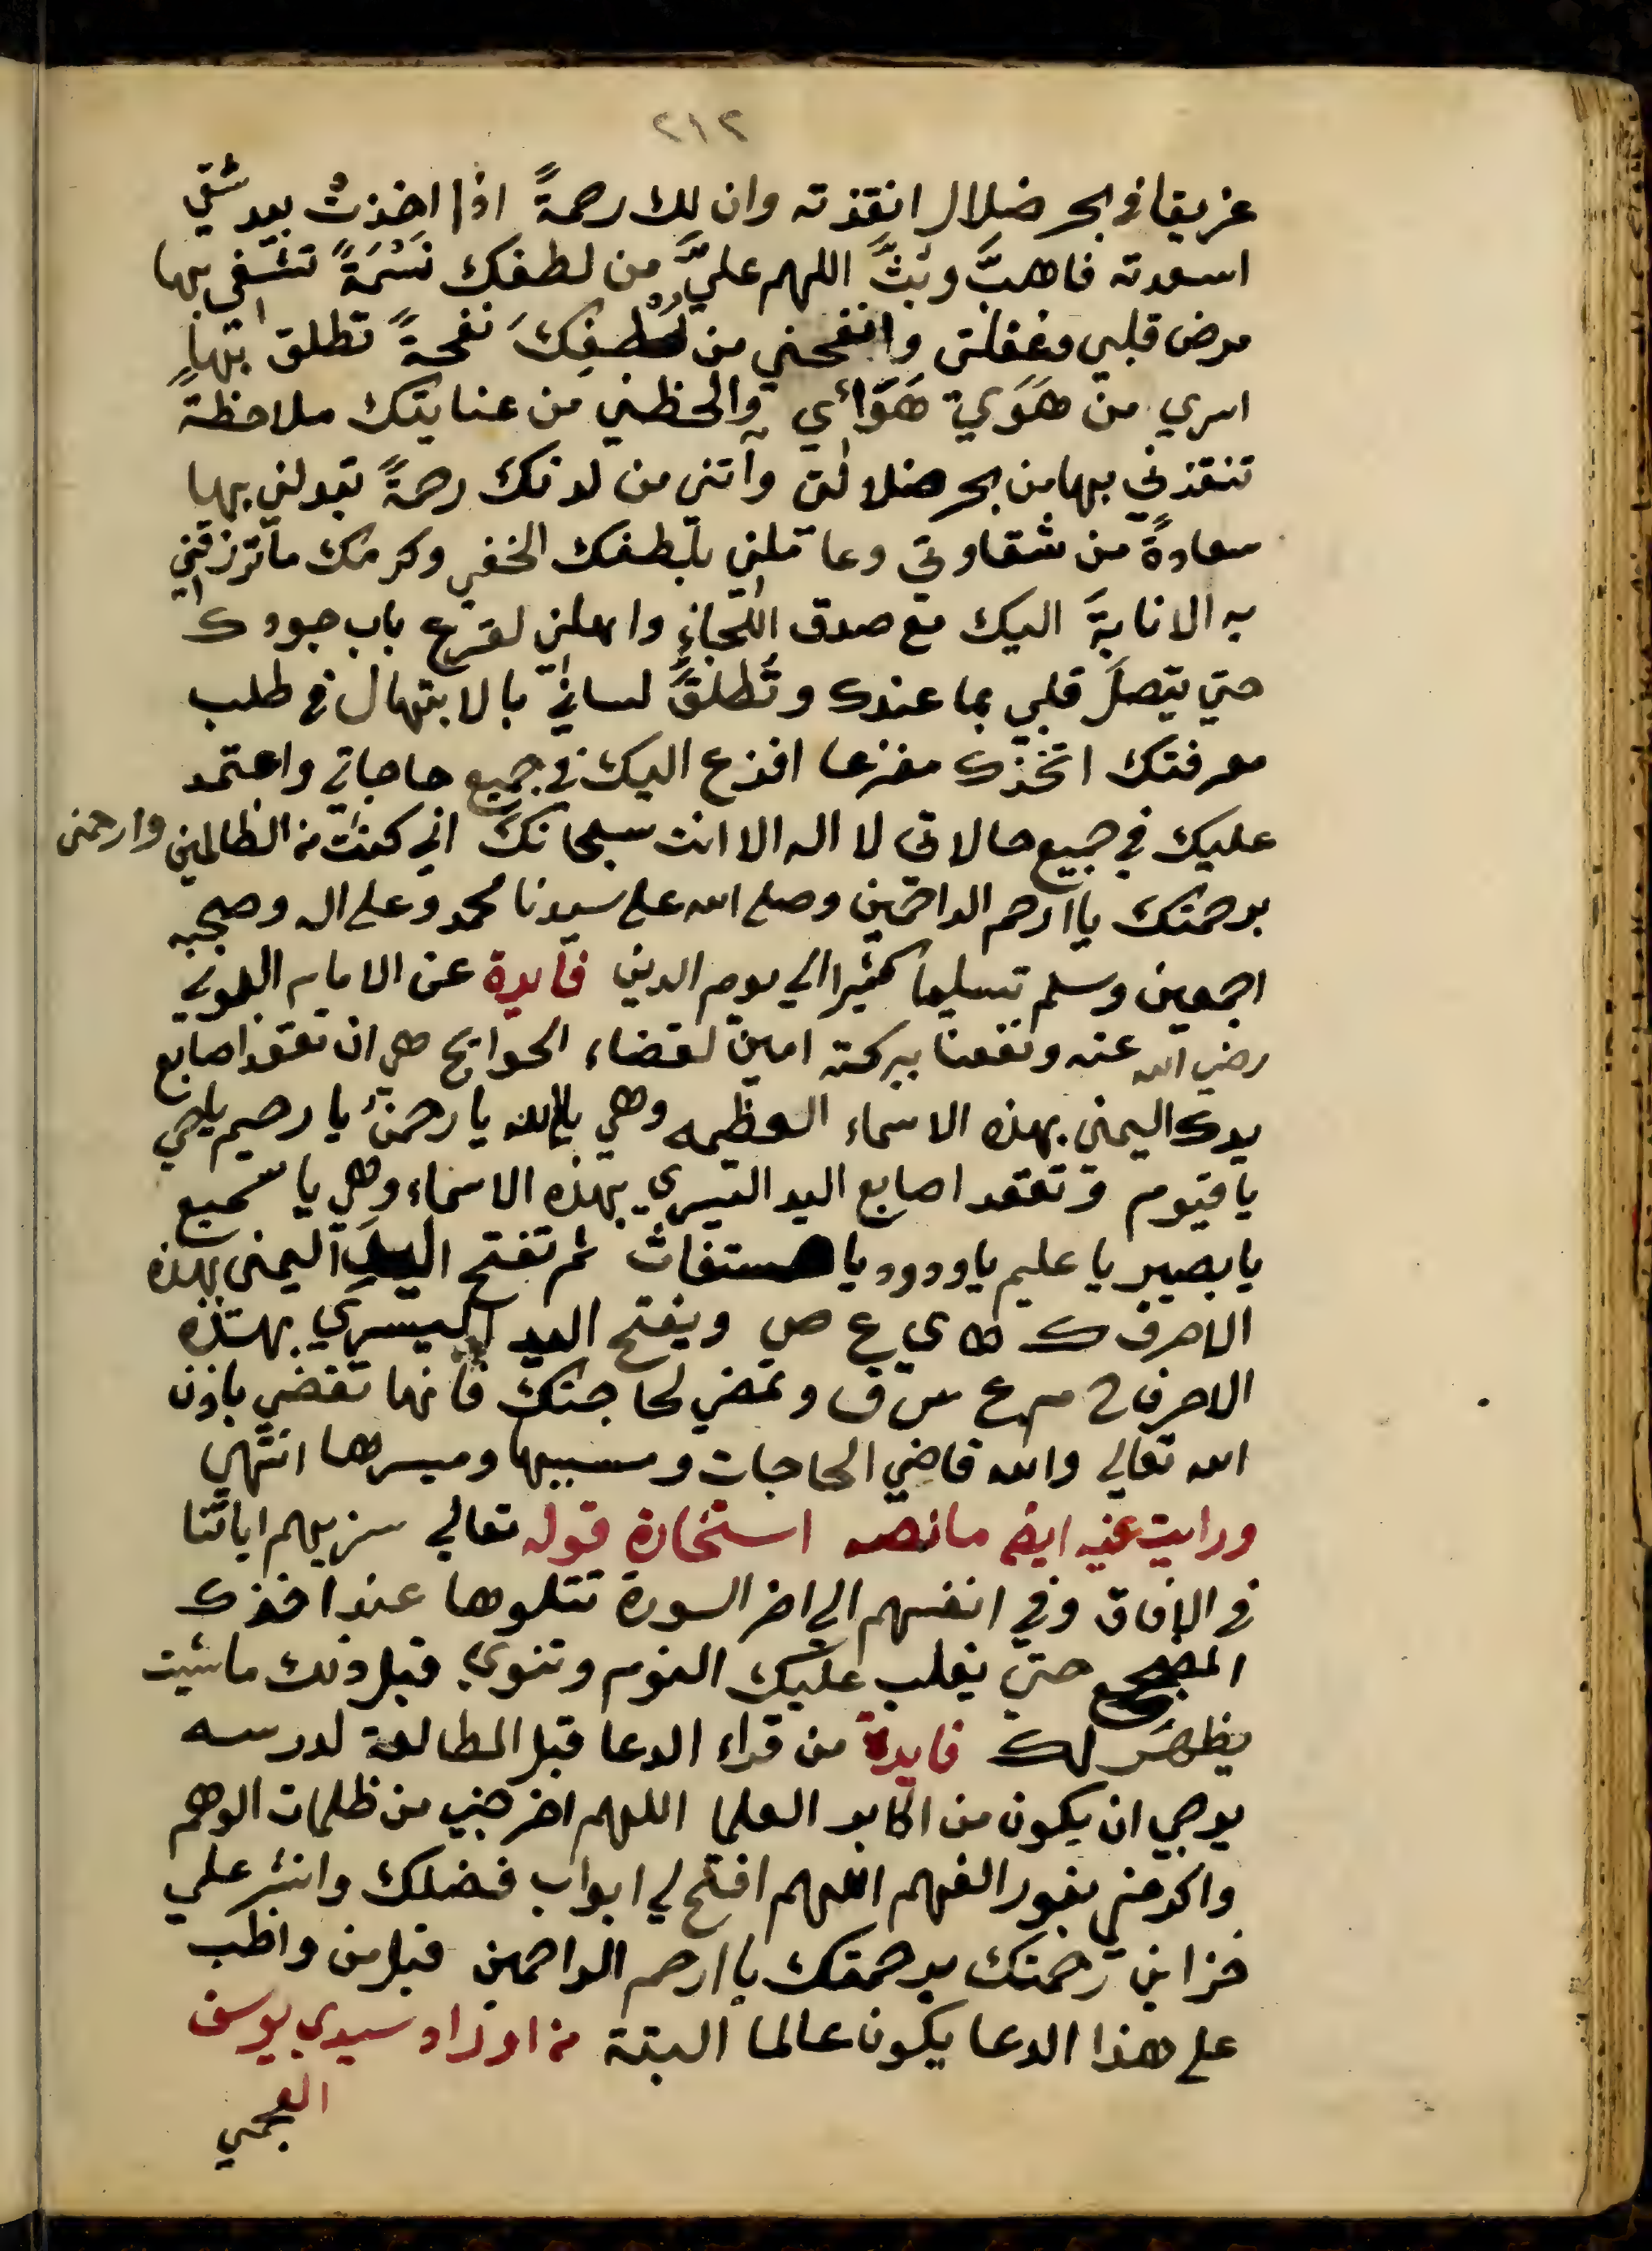 ٢١٢
غريقا في بحر ضلال انقذته وان لك رحمةً اذا اخذتْ بيد شقي
اسعدته فاهبَّ وبثَّ اللهم عليَّ من لطفك نَسْمَةً تشفي بها
مرض قلبي وغفلتي وانفحني من لُطْفِكَ نفحةً تطلق بها
اسري من هَوَي هَوَائي والحظني من عنايتك ملاحظةً
تنقذني بها من بحر ضلالتي وآتني من لدنك رحمةً تبدلني بها
سعادةً من شقاوتي وعاملني بلطفك الخفي وكرمك ما ترزقني
به الانابةَ اليك مع صدق اللجاءِ واهلني لقرع باب جودك
حتي يتصلَ قلبي بما عندك وتُطلقَ لساني بالابتهال في طلب
معرفتك اتخذك مفزعا افزع اليك في جميع حاجاتي واعتمد
عليك في جميع حالاتي لا اله الا انت سبحانك اني كنت من الظالمين وارحمنى
برحمتك يا ارحم الراحمين وصلى الله على سيدنا محمد وعلى اله وصحبه
اجمعين وسلم تسليما كثيرا الي يوم الدين فايدة عن الامام
رضي الله عنه ونفعنا ببركته امين لقضاء الحوايج هي ان تعقد اصابع
يدك اليمنى بهذه الاسماء العظيمه وهي يا الله يا رحمن يا رحيم يا حي
يا قيوم وتعقد اصابع اليد اليسري بهذه الاسماء وهي يا سميع
يا بصير يا عليم يا ودود يا مستغاث ثم تفتح اليد اليمنى بهذه
الاحرف ك ه ي ع ص ويفتح اليد اليسري بهذه
الاحرف ح م ع س ق وتمضي لحاجتك فانها تقضي باذن
الله تعالي والله قاضي الحاجات ومسببها وميسرها انتهي
ورايت عنه ايضا مانصه استخارة قوله تعالي سنريهم اياتنا
في الافاق وفي انفسهم الي اخر السورة تتلوها عند اخذك
المضجع حتي يغلب عليك النوم وتنوي قبل ذلك ما شيت
يظهر لك فايدة من قراء الدعا قبل المطالعة لدرسه
يرجي ان يكون من اكابر العلما اللهم اخرجني من ظلمات الوهم
واكرمني بنور الفهم اللهم افتح لي ابواب فضلك وانشر علي
خزاين رحمتك برحمتك يا ارحم الراحمين قيل من واظب
على هذا الدعا يكون عالما البتة من اوراد سيدي يوسف
العجمي